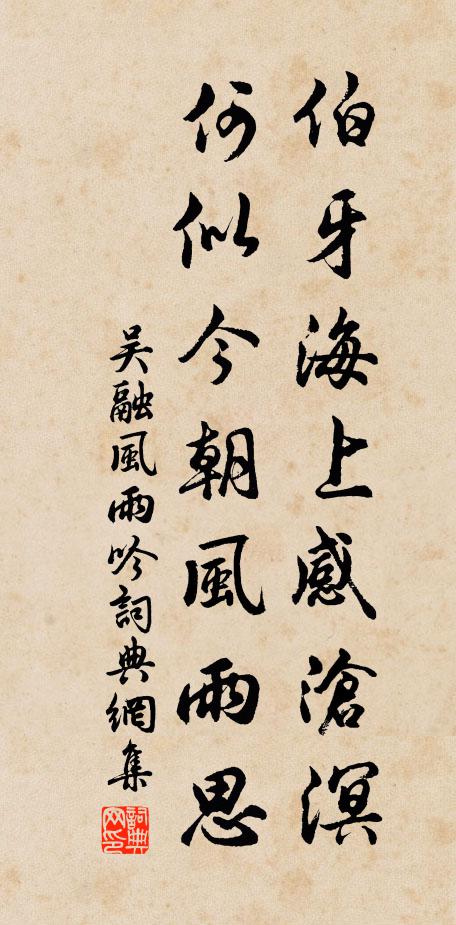 伯牙海上感滄溟
何似今朝風雨思
吴融風雨吟詞典網集
詞典网印